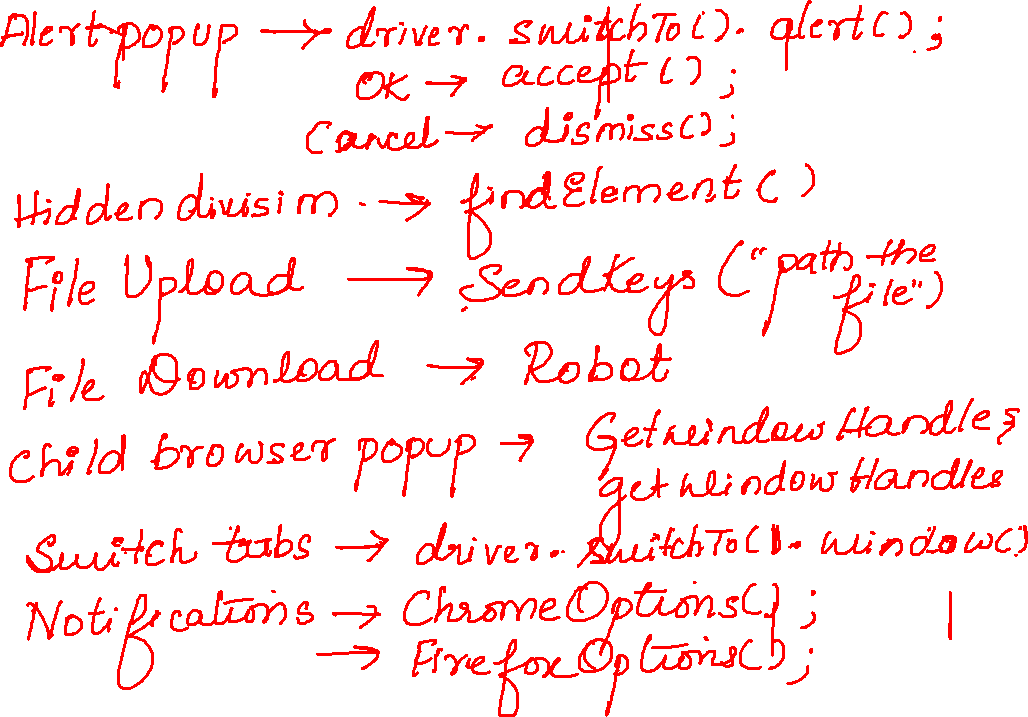 Alert popup → driver. switchTo(). alert();
OK → accept();
Cancel → dismiss();
Hidden division . → findElement()
File Upload → Sendkeys ("path the
file")
File Download → Robot
Child browser popup → GetwindowHandles
getWindowHandles
Switch tabs → driver. switchTo(). window()
Notifications → ChromeOptions();
→ FirefoxOptions();